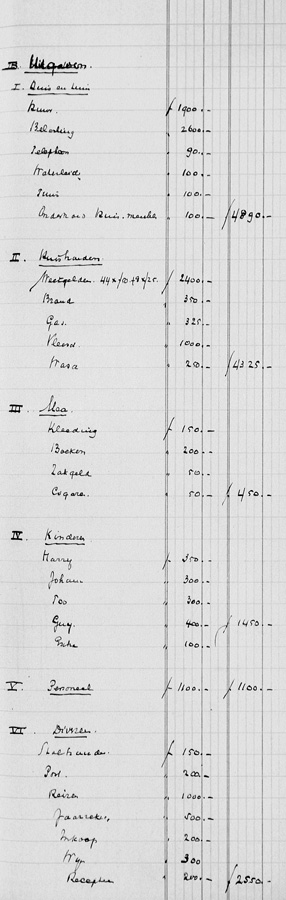 B. Uitgaven.
I. Huis en tuin
Huur ƒ 1900.-
Belasting " 2600.-
Telephoon " 90.-
Waterleidg " 100.-
Tuin " 100.-
Onderhoud Huis, meubel " 100.- ƒ 4890.-
II. Huishouden.
Weekgelden. 44 x ƒ50. + 8 x ƒ25. ƒ 2400.-
Brand " 350.-
Gas. " 325.-
Vleesch " 1000.-
Wasch " 250.- ƒ 4325.-
III.
Kleeding ƒ 150.-
Boeken " 200.-
Zakgeld " 50.-
Cigare. " 50.- ƒ 450.-
IV. Kinderen
Harry ƒ 350.-
Johan " 300.-
Too " 300.-
Guy. " 400.- ƒ 1450.-
" 100.-
V. Personeel ƒ 1100.- ƒ 1100.-
VI. Diversen.
ƒ 150.-
Port. " 200.-
Reizen " 1000.-
" 500.-
Inkoop " 200.-
Wijn " 300
Recepties " 200.- ƒ 2550.-